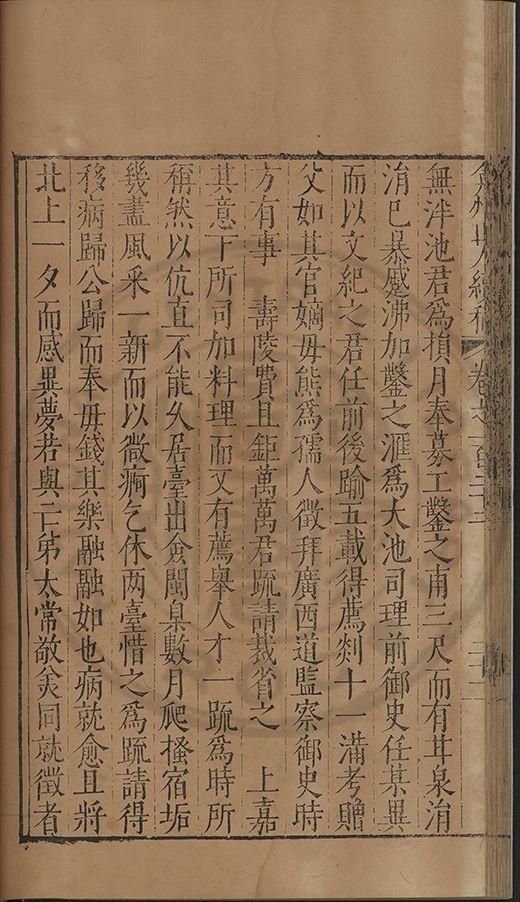 弇州山人續稿 卷之一百三十
無泮池君爲損月奉募工鑿之甫三尺而有井泉涓
涓巳暴蹙沸加鑿之滙爲大池司理前御史任某異
而以文紀之君任前後踰五載得薦剡十一滿考贈
父如其官嫡母熊爲孺人徵拜廣西道監察御史時
方有事 壽陵費且鉅萬萬君疏請裁省之 上嘉
其意下所司加料理而又有薦舉人才一疏爲時所
稱然以伉直不能久居臺出僉閩臬數月爬搔宿垢
幾盡風采一新而以微痾乞休两臺惜之爲疏請得
移病歸公歸而奉母錢其樂融融如也病就愈且將
北上一夕而感異夢若與二弟太常敬美同就徵者